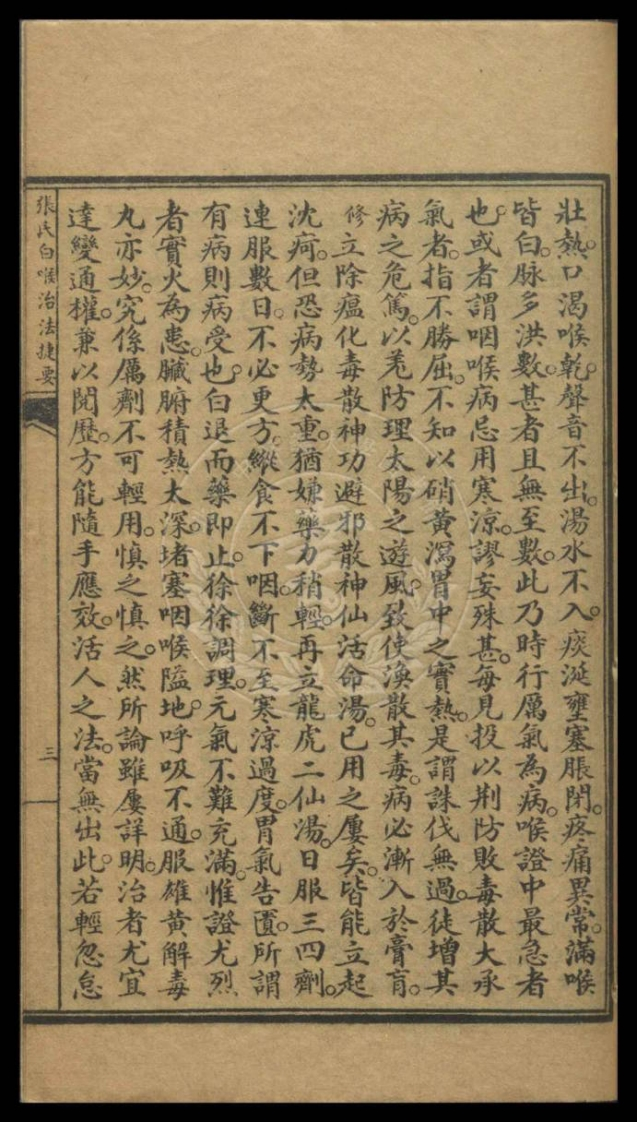 壯熱。口渴喉乾。聲音不出。湯水不入。痰涎壅塞脹閉。疼痛異常。滿喉
皆白。脉多洪數。甚者且無至數。此乃時行厲氣為病。喉證中最急者
也。或者謂咽喉病忌用寒涼。謬妄殊甚。每見投以荆防敗毒散大承
氣者。指不勝屈。不知以硝黃瀉胃中之實熱。是謂誅伐無過。徒增其
病之危篤。以羌防理太陽之遊風。致使渙散其毒。病必漸入於膏肓。
修立除瘟化毒散神功避邪散神仙活命湯。已用之屢矣。皆能立起
沈疴。但恐病勢太重。猶嫌藥力稍輕。再立龍虎二仙湯。日服三四劑。
連服數日。不必更方。縱食不下咽。斷不至寒涼過度。胃氣告匱。所謂
有病則病受也。白退而藥即止。徐徐調理。元氣不難充滿。惟證尤烈
者實火為患。臟腑積熱太深。堵塞咽喉隘地。呼吸不通。服雄黃解毒
丸亦妙。究係厲劑不可輕用。慎之慎之。然所論雖屢詳明。治者尤宜
達變通權。兼以閱歷。方能隨手應效。活人之法。當無出此。若輕忽怠
張氏白喉治法捷要
三